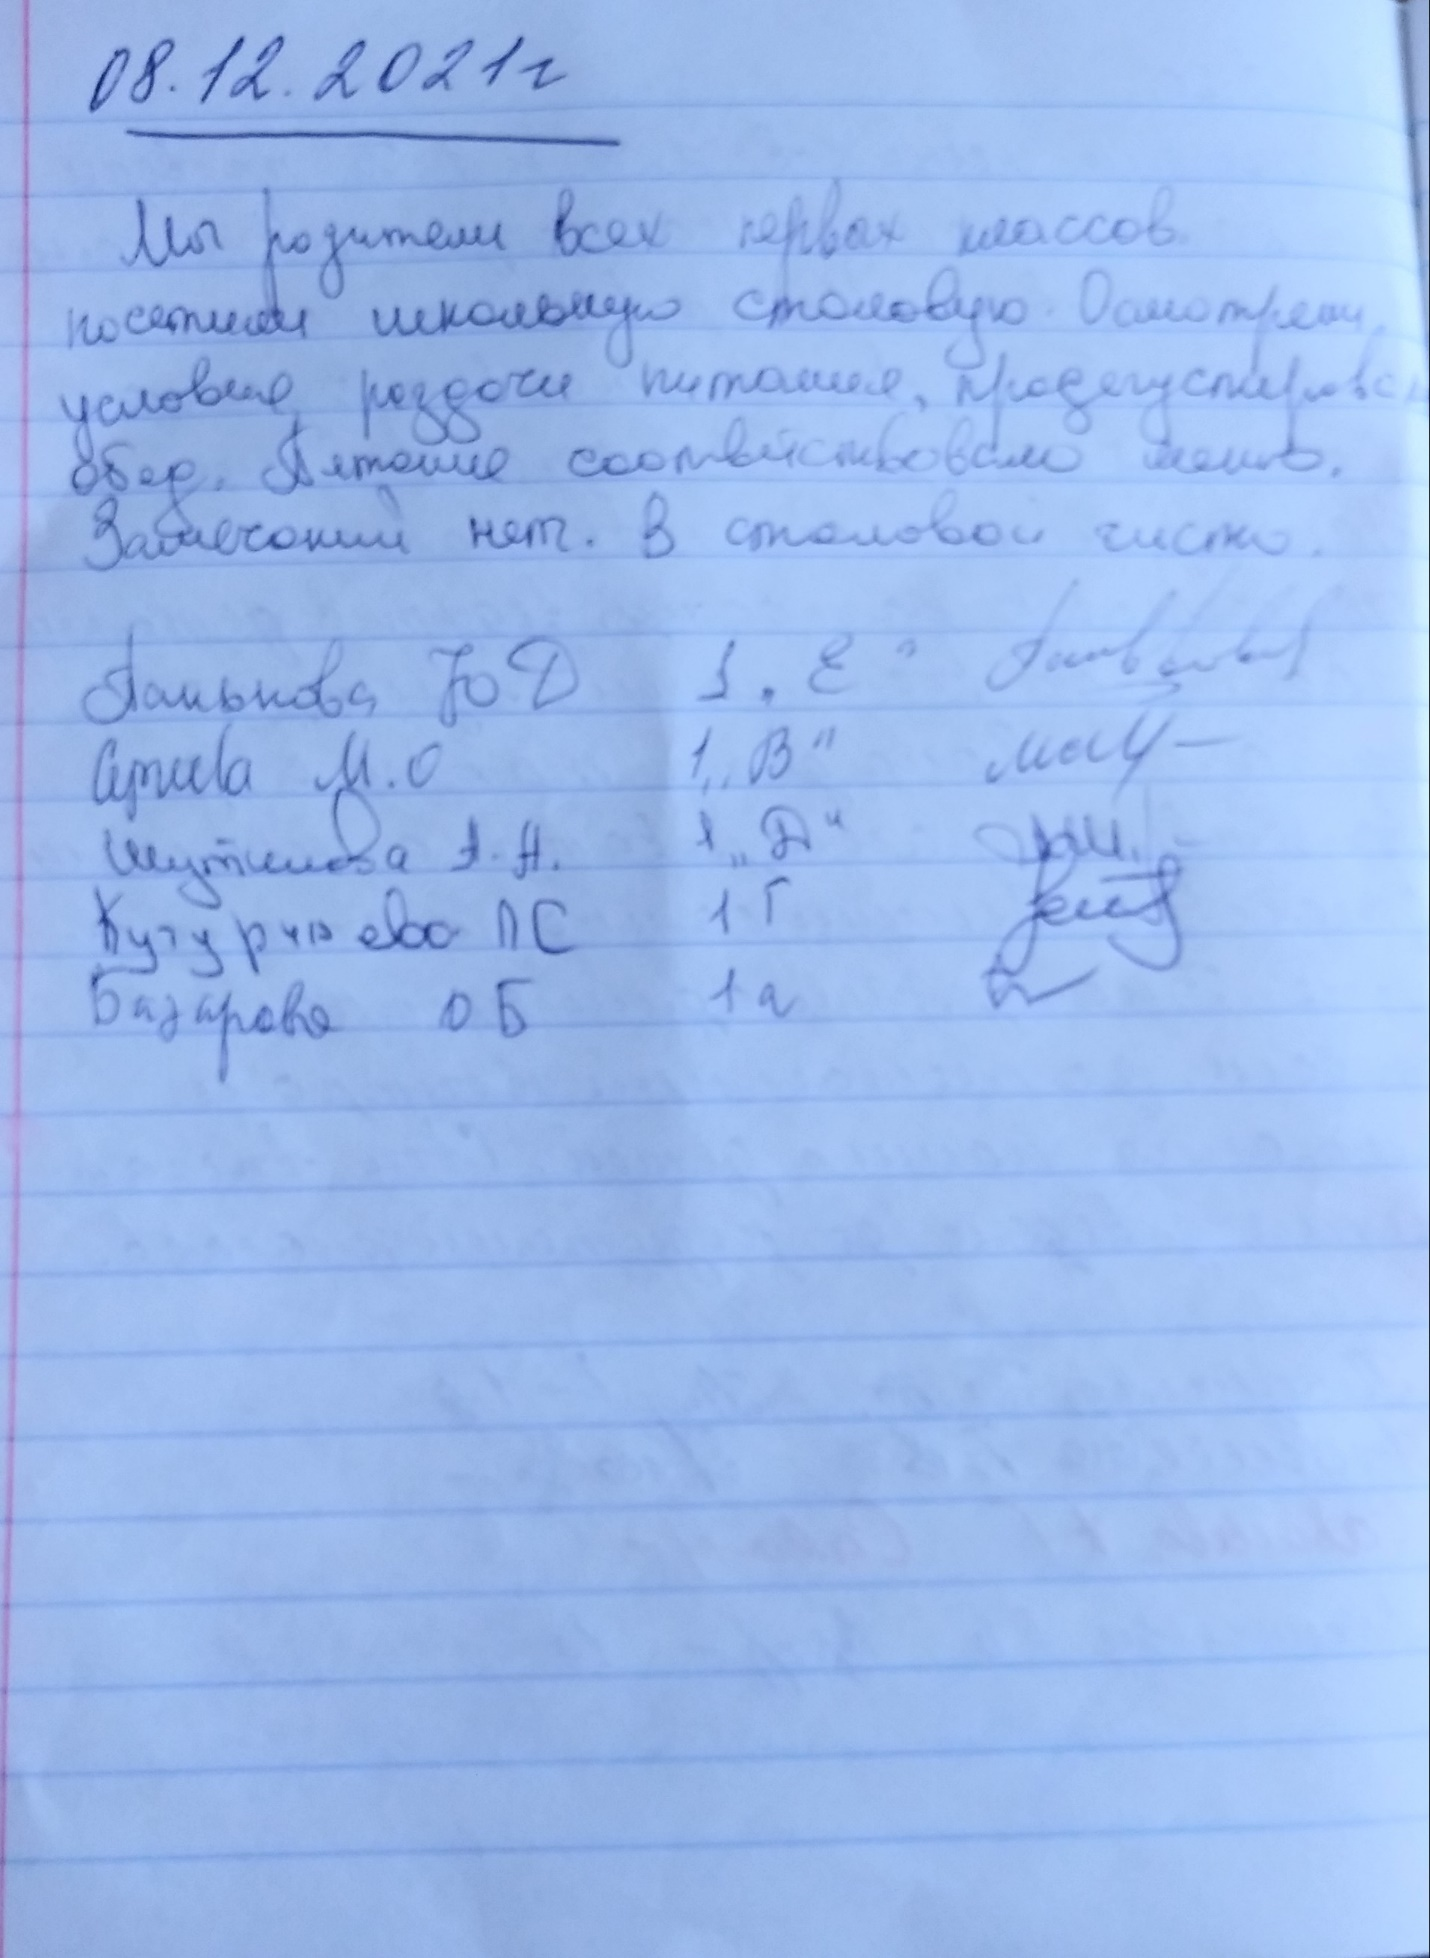 08.12.2021г
Мы родители всех первых классов
посетили школьную столовую. Осмотрели
условия раздачи питания, продегустировали
обед. Питание соответствовало меню.
Замечаний нет. В столовой чисто.
Панькова Ю Д 1 „Е"
М.О 1 „В"
А.Н. 1 „Д"
ПС 1 Г
Базарова О Б 1 а